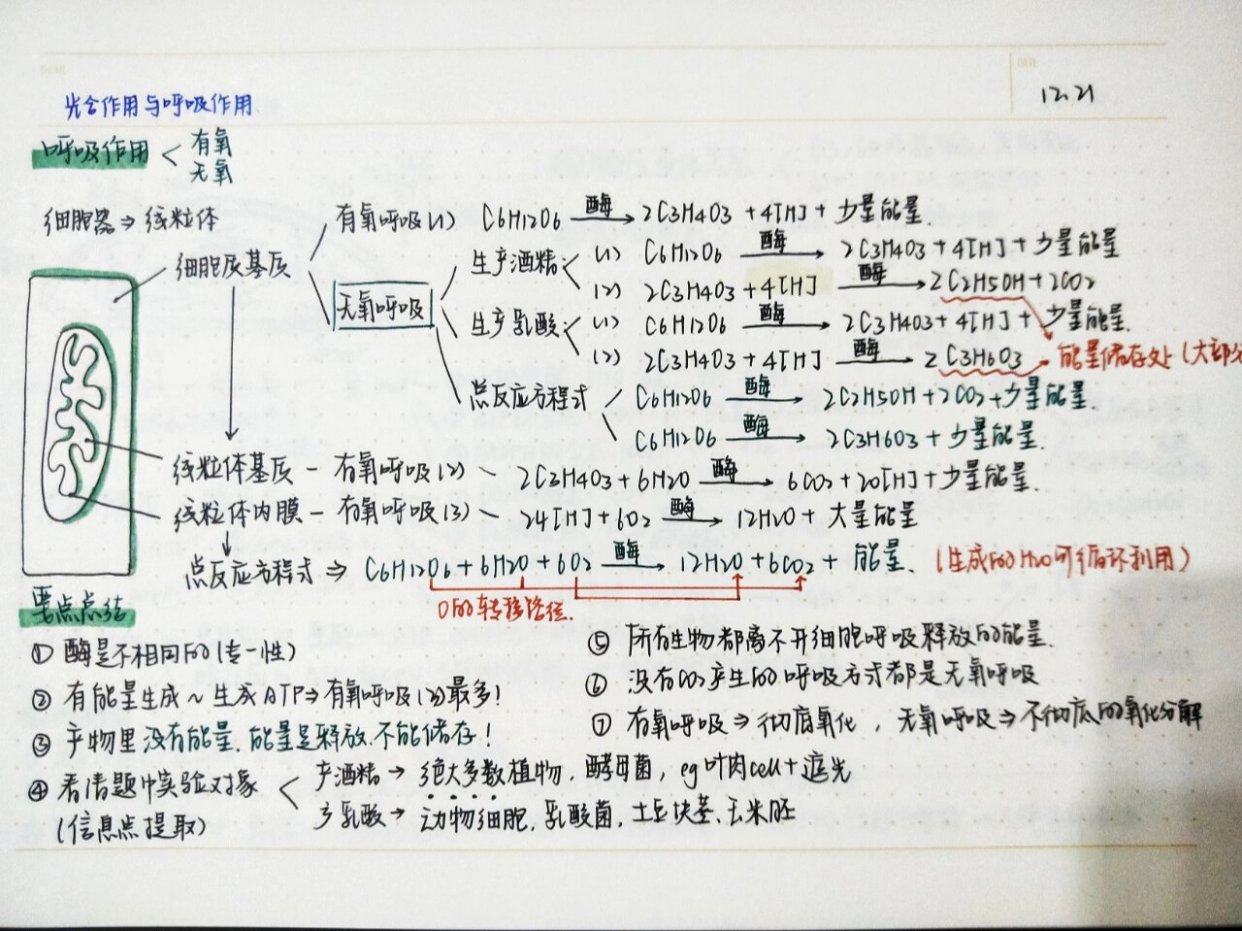 12.21
光合作用与呼吸作用
呼吸作用 < 有氧
无氧
细胞器 ⇒ 线粒体
有氧呼吸(1) C6H12O6 酶→ 2C3H4O3 + 4[H] + 少量能量
细胞质基质
无氧呼吸
生产酒精 < (1) C6H12O6 酶→ 2C3H4O3 + 4[H] + 少量能量
(2) 2C3H4O3 + 4[H] 酶→ 2C2H5OH + 2CO2
生产乳酸 < (1) C6H12O6 酶→ 2C3H4O3 + 4[H] + 少量能量.
(2) 2C3H4O3 + 4[H] 酶→ 2C3H6O3 能量储存处(大部分
总反应方程式 < C6H12O6 酶→ 2C2H5OH + 2CO2 + 少量能量
C6H12O6 酶→ 2C3H6O3 + 少量能量.
线粒体基质 - 有氧呼吸(2) 2C3H4O3 + 6H2O 酶→ 6CO2 + 20[H] + 少量能量.
线粒体内膜 - 有氧呼吸(3) 24[H] + 6O2 酶→ 12H2O + 大量能量
总反应方程式 ⇒ C6H12O6 + 6H2O + 6O2 酶→ 12H2O + 6CO2 + 能量. (生成的H2O可循环利用)
O的转移路径.
要点总结
① 酶是不相同的(专一性)
② 有能量生成~生成ATP⇒有氧呼吸(3)最多!
③ 产物里没有能量,能量是释放.不能储存!
④ 看清题中实验对象 < 产酒精 → 绝大多数植物,酵母菌,eg叶肉cell+遮光
(信息点提取) 产乳酸 → 动物细胞,乳酸菌,土豆块茎、玉米胚
⑤ 所有生物都离不开细胞呼吸释放的能量.
⑥ 没有CO2产生的呼吸方式都是无氧呼吸
⑦ 有氧呼吸⇒彻底氧化,无氧呼吸⇒不彻底的氧化分解